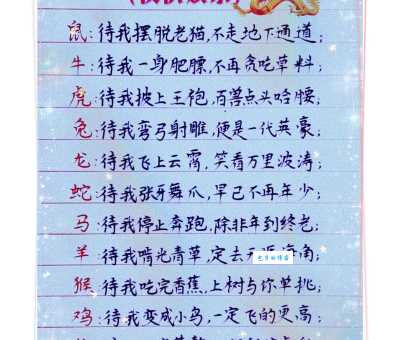 鼠:待我摆脱老猫,不走地下通道;
牛:待我一身肥膘,不再贪吃草料;
虎:待我披上王袍,百兽点头哈腰;
兔:待我弯弓射雕,便是一代英豪;
龙:待我飞上云霄,笑看万里波涛;
蛇:待我张牙舞爪,早已不再年少;
马:待我停止奔跑,除非年到终老;
羊:待我啃光青草,定去天涯海角;
猴:待我吃完香蕉,上树与你单挑;
鸡:待我变成小鸟,一定飞的更高;